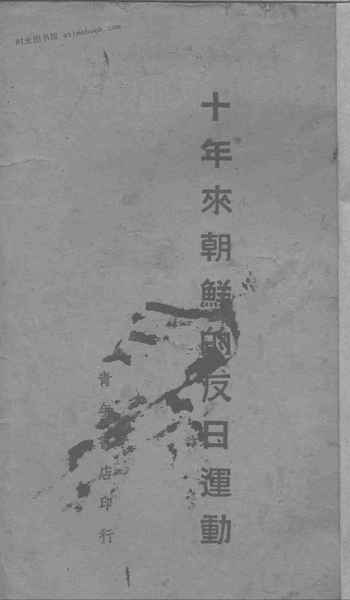 十年來朝鮮的反日運動
青年書店印行
时光图书馆